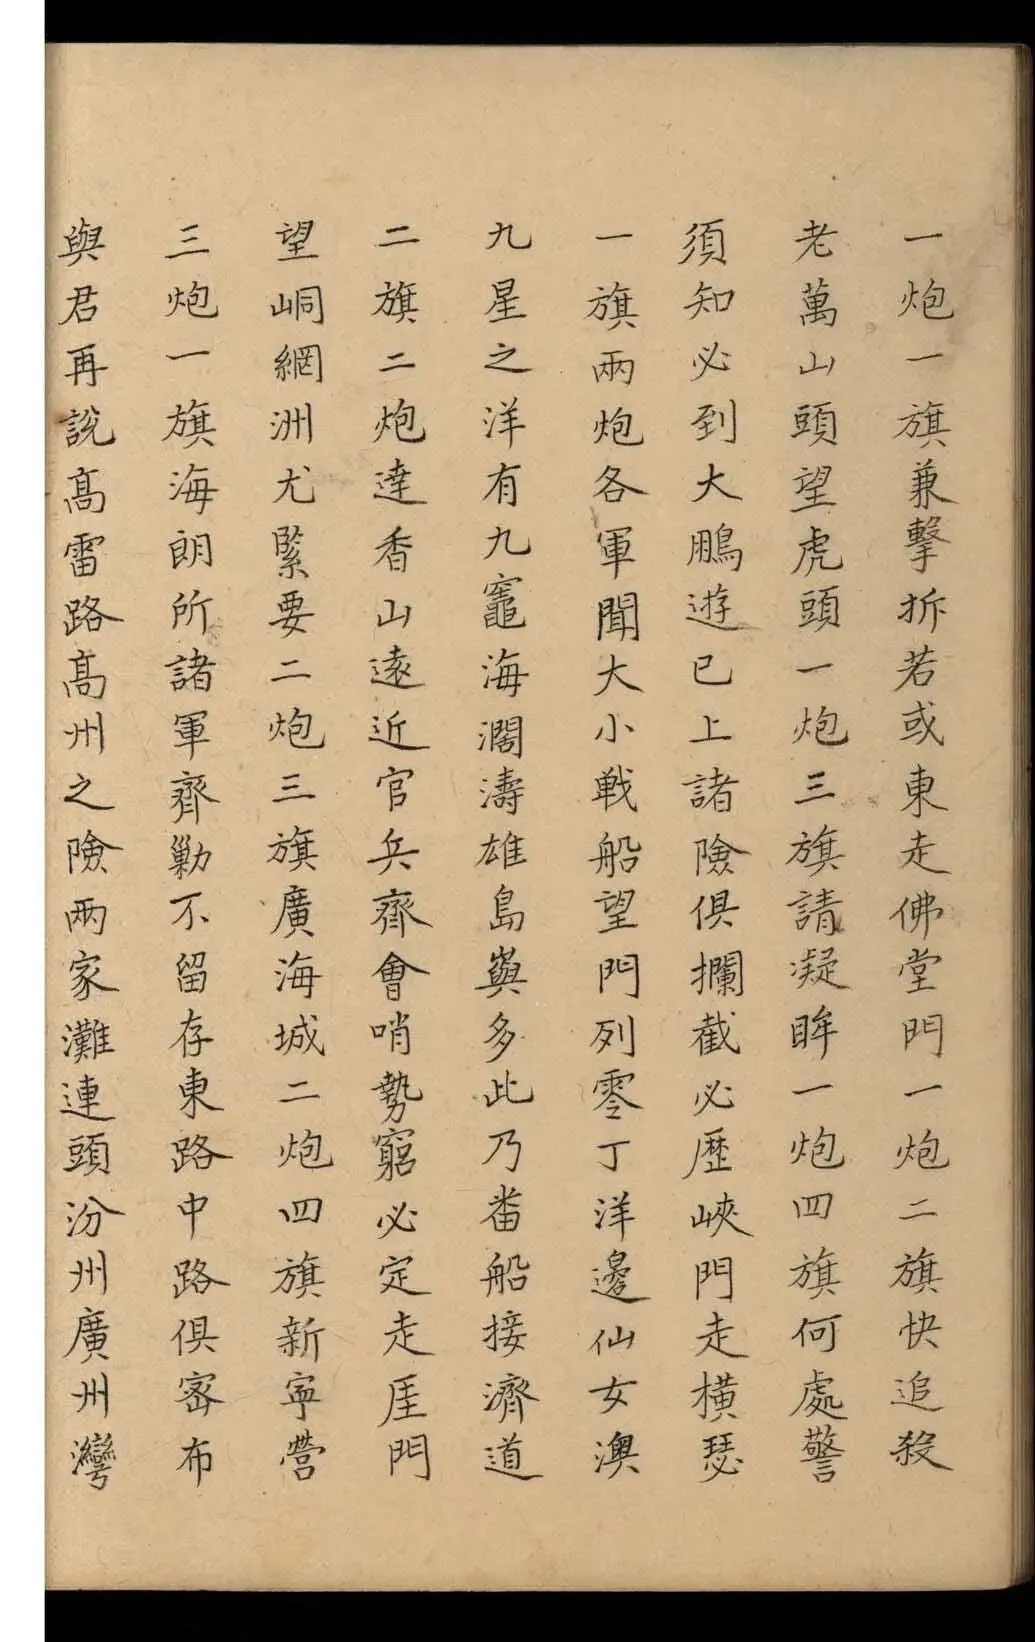 一炮一旗兼擊拆若或東走佛堂門一炮二旗快追殺
老萬山頭望虎頭一炮三旗請凝眸一炮四旗何處警
須知必到大鵬遊已上諸險俱攔截必歷峽門走橫琴
一旗兩炮各軍聞大小戰船望門列零丁洋邊仙女澳
九星之洋有九竈海濶濤雄島嶼多此乃番船接濟道
二旗二炮達香山遠近官兵齊會哨勢窮必定走厓門
望峒網洲尤緊要二炮三旗廣海城二炮四旗新寧營
三炮一旗海朗所諸軍齊勦不留存東路中路俱密布
與君再說髙雷路髙州之險兩家灘連頭汾州廣州灣